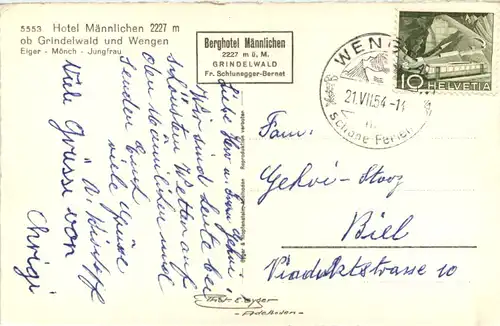 5553 Hotel Männlichen 2227 m
ob Grindelwald und Wengen
Eiger - Mönch - Jungfrau
Berghotel Männlichen
2227 m ü. M.
GRINDELWALD
Fr. Schlunegger-Bernet
WENGEN
21.VII.54
Schöne Ferien
10 HELVETIA
Liebe Herr u. Frau Gehri
Wir sind heute bei
schönstem Wetter auf
dem Männlichen und
senden Euch
viele Grüsse
Viele Grüsse von
Chrigi
Fam.
Gehri-Stooz
Biel
Viaduktstrasse 10
Adelboden